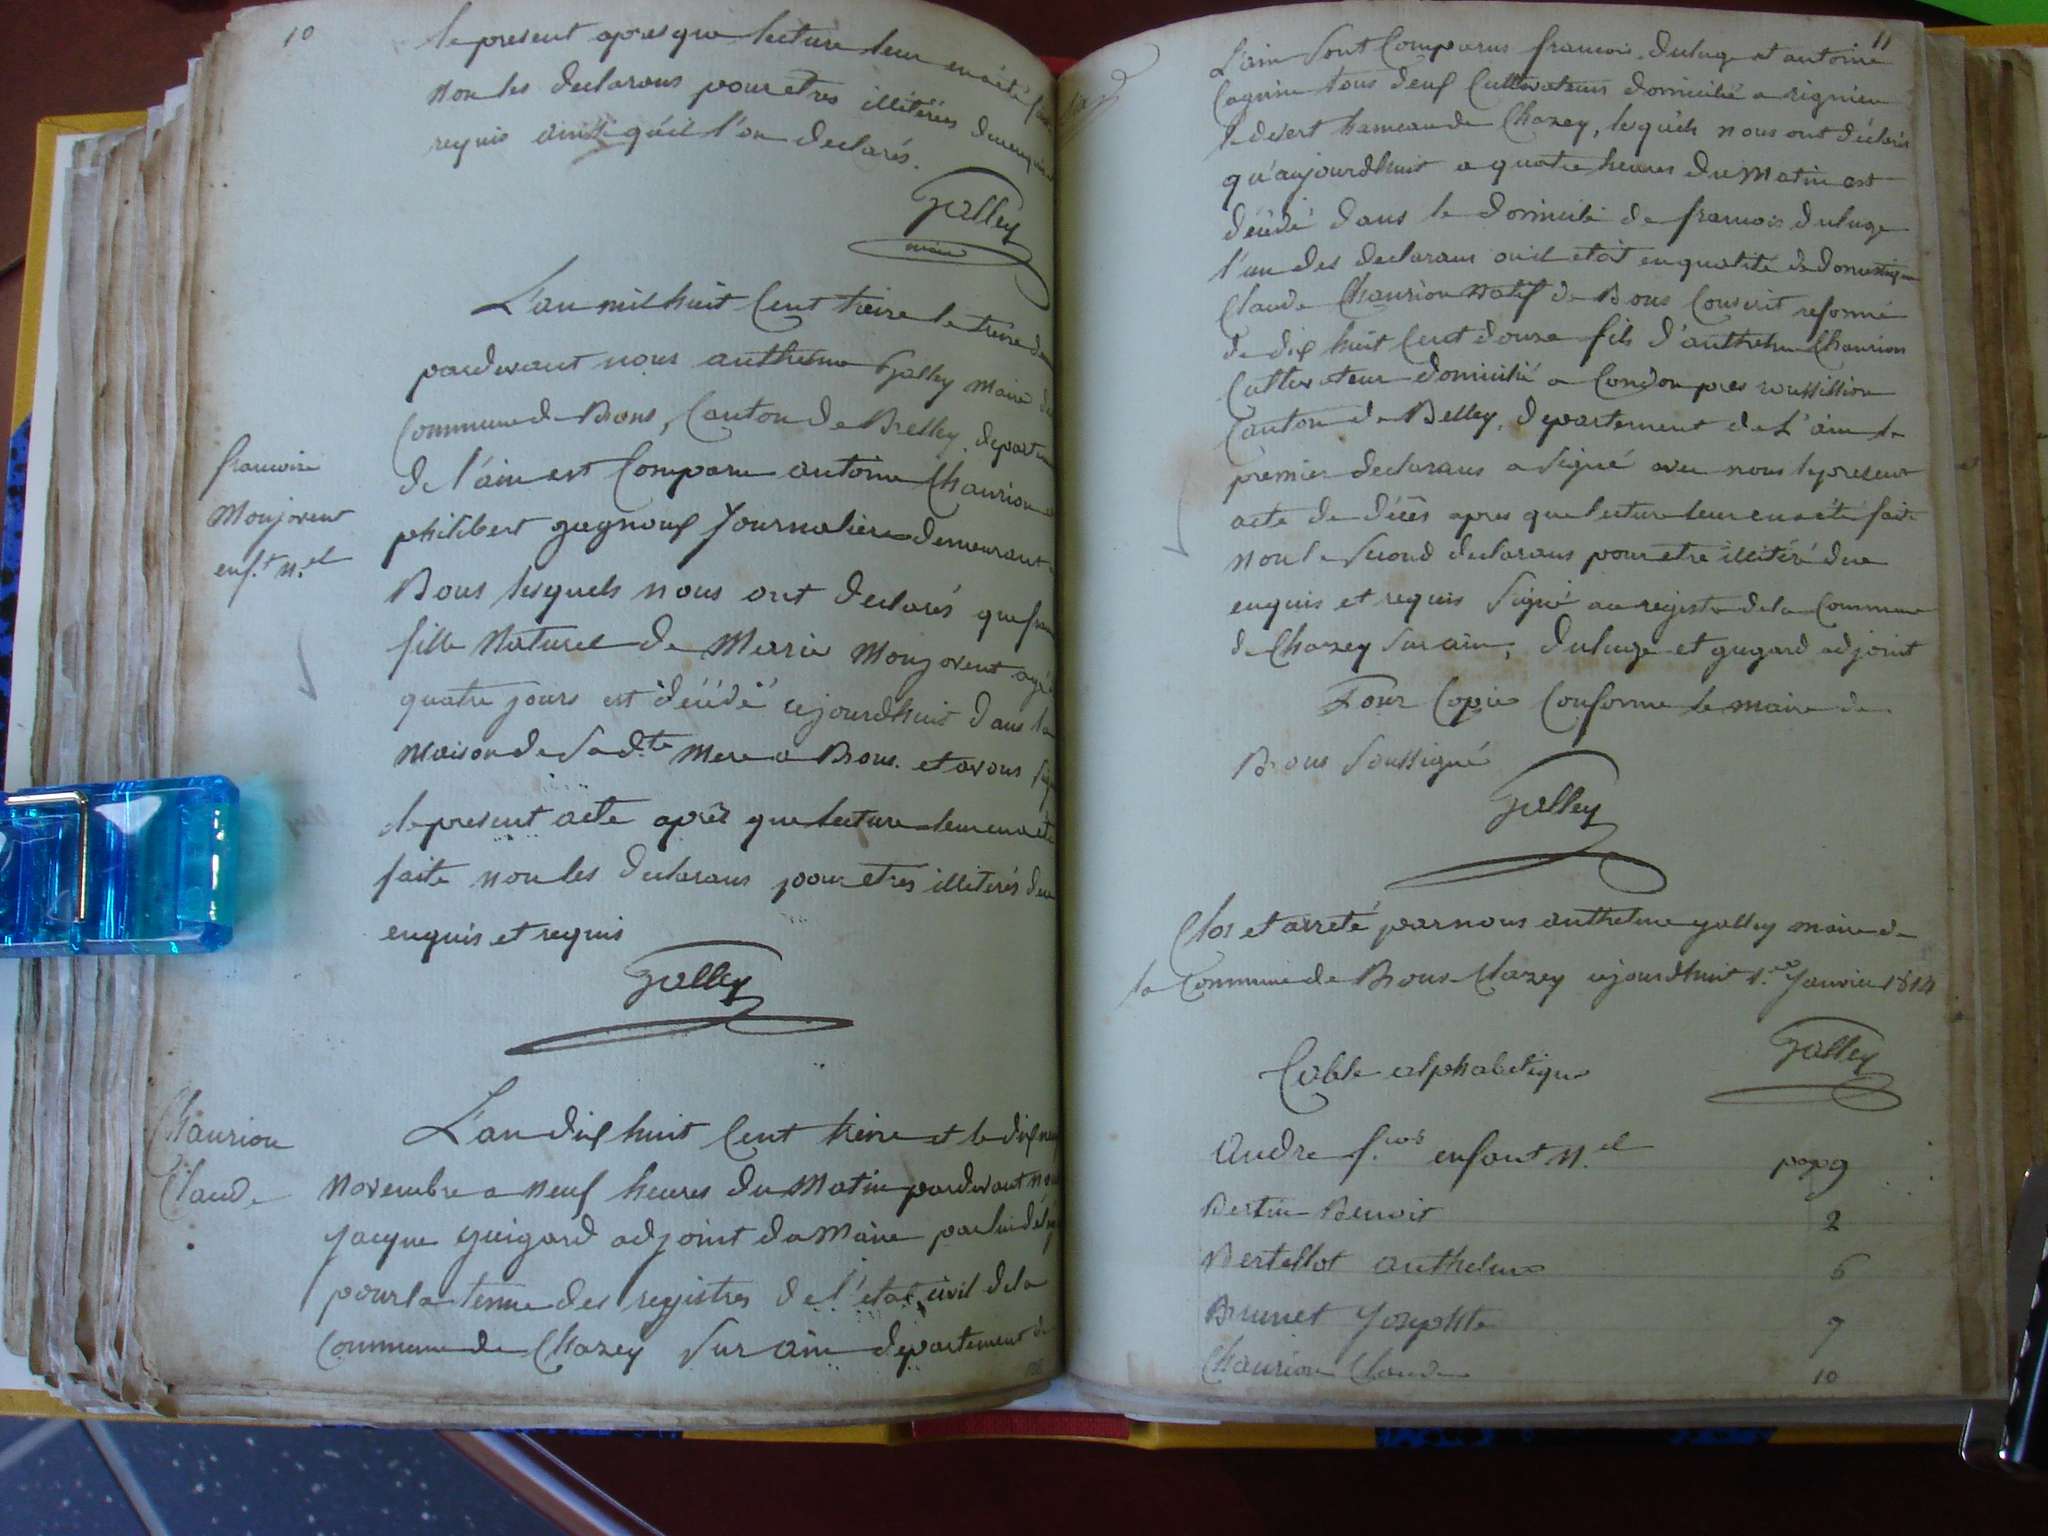 10
le present apres que lecture leur en a été faite
non les declarans pour etres illitérés duenquis et
requis ainsi qu'il l'on declarés.
Galley
maire
L'an mil huit Cent treize le treize
pardevant nous anthelme Galley Maire de
Commune de Bons, Canton de Belley, departem
de l'ain est Comparu antoine Chaurion et
philibert gagnoux Journaliers demeurant
francoise
Monjovent
enf.t n.el
Bons lesquels nous ont declarés que fran
fille Naturel de Marie Monjovent agé
quatre jours est décédé cejourdhuit dans la
maison de Sad.te Mere a Bons. et avons signé
le present acte après que lecture leur en a été
faite non les declarans pour etres illiterés due
enquis et requis
Galley
Chaurion
Claude
L'an dix huit Cent treize et le dix neuf
Novembre a neuf heures du Matin pardevant nous
jacque guigard adjoint du Maire par lui délég
pour la tenue des registres de l'état civil de la
Commune de Chazey Sur ain departement de
11
L'ain sont Comparus francois deluge et antoine
tous deux Cultivateurs domicilié a rignieu
le desert hameau de Chazey, lesquels nous ont déclarés
qu'aujourdhuit a quatre heures du Matin est
décédé dans le domicile de francois deluge
l'un des declarans ou il etoit en qualité de domestique
Claude Chaurion natif de Bons Conscrit reformé
de dix huit Cent douze fils d'anthelme Chaurion
Cultivateur domicilié a Condon pres roussillion
Canton de Belley, departement de L'ain le
premier declarans a signé avec nous le present
acte de décès apres que lecture leur en a été faite
non le Second declarans pour etre illitéré due
enquis et requis Signé au registre de la Commune
de Chazey Sur ain, deluge et guigard adjoint
Pour Copie Conforme le maire de
Bons Soussigné
Galley
Clos et arreté par nous anthelme galley maire de
la Commune de Bons Chazey cejourdhuit 1.er Janvier 1814
Galley
Table alphabetique
Andre f.cois enfant n.el pag 9
Bertin Benoit 2
Bertellot anthelme 6
Brunet Josephte 9
Chaurion Claude 10